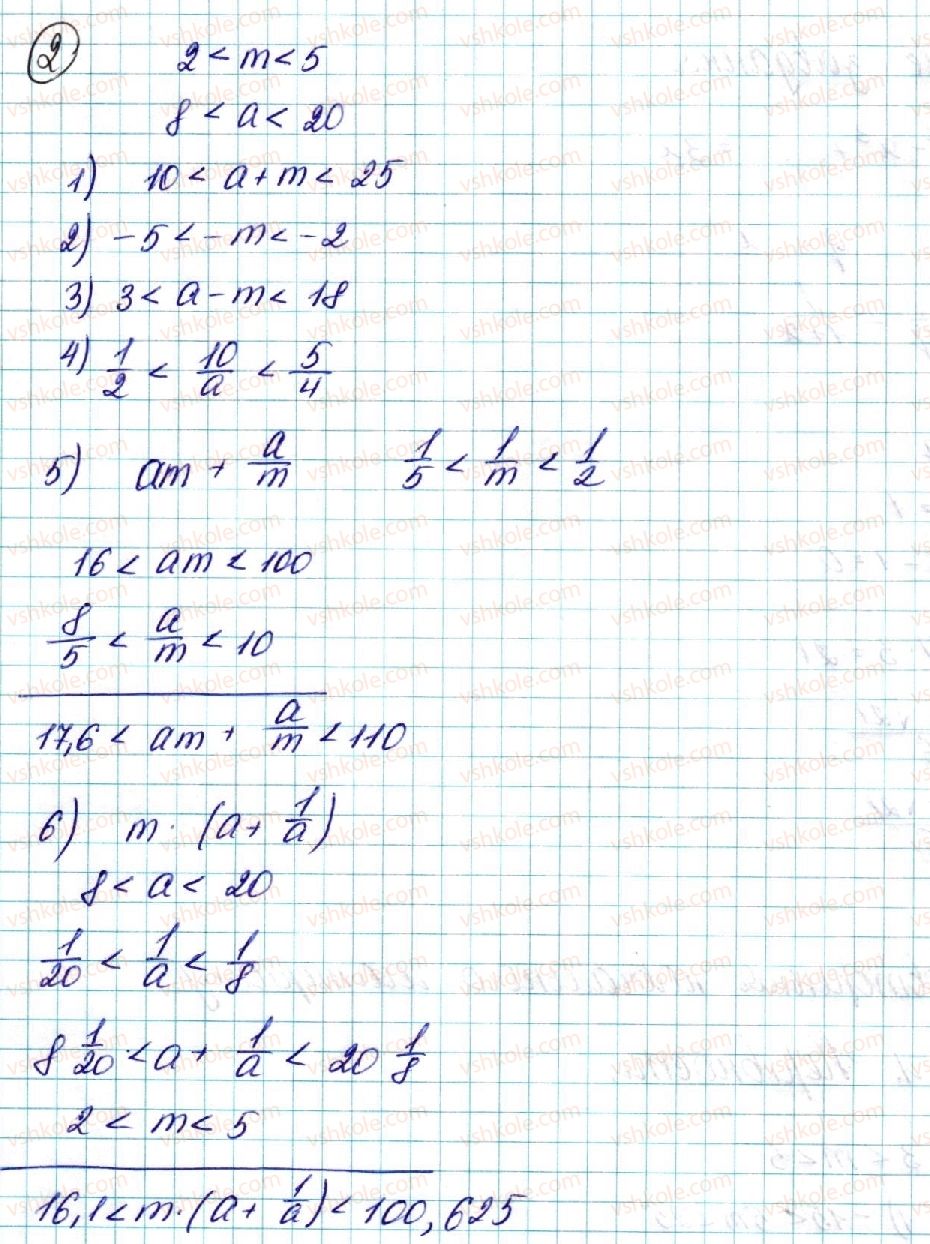 2
2 < m < 5
8 < a < 20
1) 10 < a + m < 25
2) -5 < -m < -2
3) 3 < a - m < 18
4) 1/2 < 10/a < 5/4
5) am + a/m 1/5 < 1/m < 1/2
16 < am < 100
8/5 < a/m < 10
17,6 < am + a/m < 110
6) m · (a + 1/a)
8 < a < 20
1/20 < 1/a < 1/8
8 1/20 < a + 1/a < 20 1/8
2 < m < 5
16,1 < m · (a + 1/a) < 100,625
vshkole.com